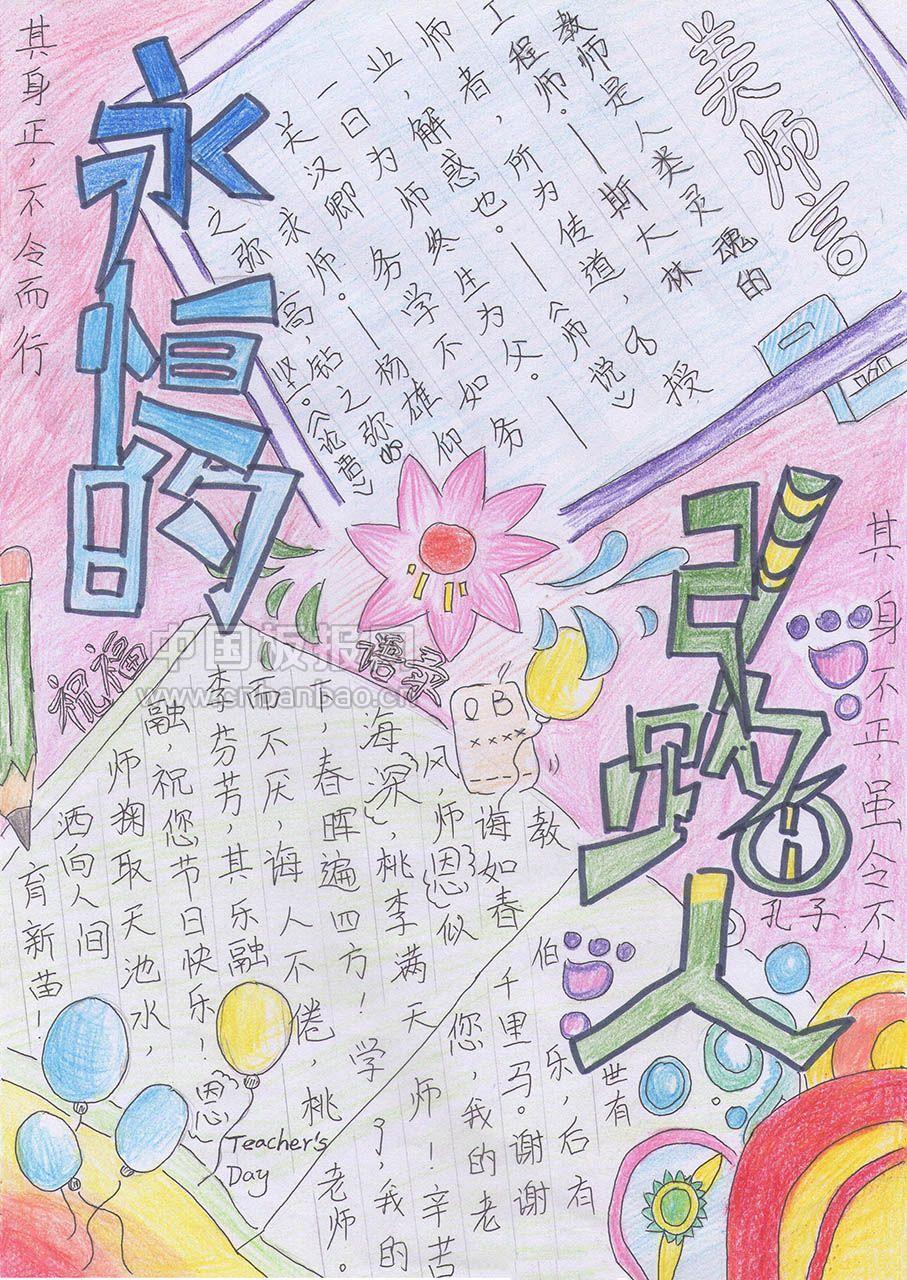 永恒的
引路人
其身正，不令而行
其身不正，虽令不从
孔子
美师言
教师是人类灵魂的
工程师。——斯大林
师者，所为传道，授
业解惑也。——《师说》
一日为师，终生为父。——
关汉卿 务学不如务
求师。——杨雄 仰
之弥高，钻之弥坚。《论语》
中国板报网
www.cnbanbao.cn
祝福语录
QB
××××
教
诲如春
风，师恩似
海深，桃李满天
下，春晖遍四方！学
而不厌，诲人不倦，桃
李芬芳，其乐融
融，祝您节日快乐！老
师鞠取天池水，
洒向人间
育新苗！
世有
伯乐，后有
千里马。谢谢
您，我的老
师！辛苦
了，我的
老师。
恩
Teacher's
Day